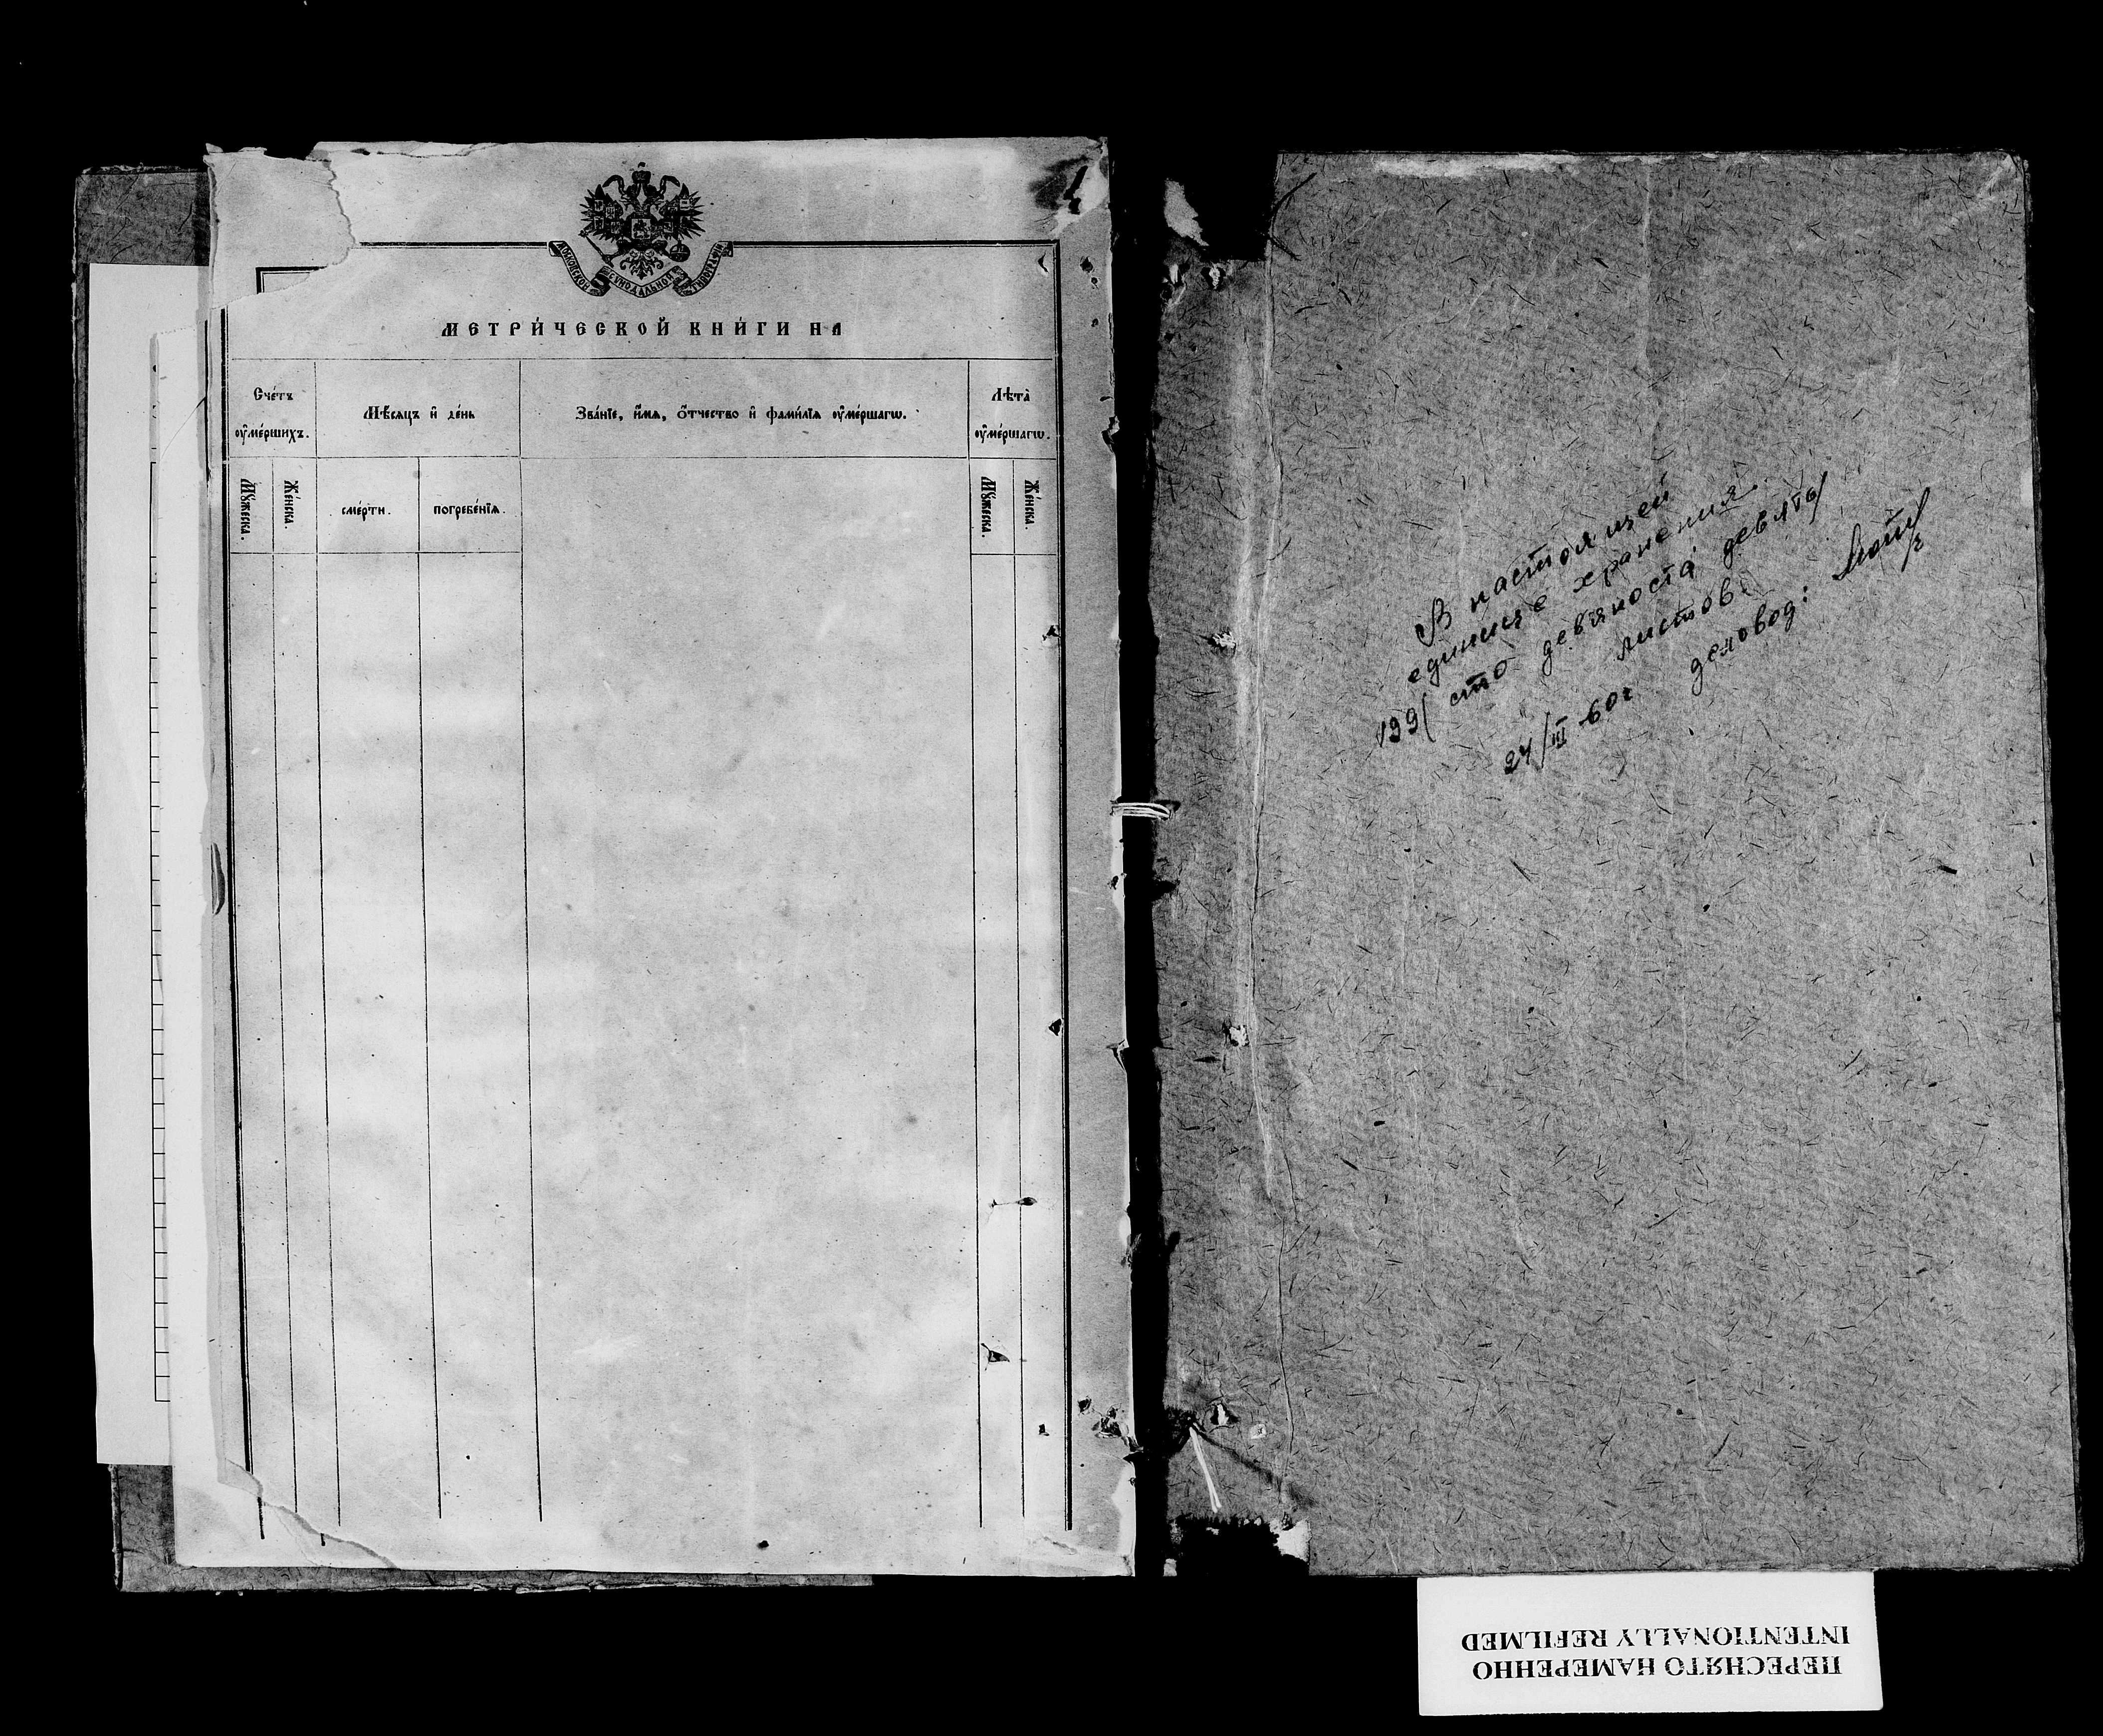 МОСКОВСКОЙ СѴНОДАЛЬНОЙ ТИПОГРАФІИ
МЕТРИ́ЧЕСКОЙ КНИ́ГИ НА
Сче́тъ
ᲂу҆ме́ршихъ.
Мѣ́сяцъ и҆ де́нь
Зва́нїе, и҆́мѧ, ѻ҆́тчество и҆ фами́лїѧ ᲂу҆ме́ршагѡ.
Лѣта̀
ᲂу҆ме́ршагѡ.
Мꙋ́жеска.
Же́нска.
сме́рти.
погребе́нїѧ.
Мꙋ́жеска.
Же́нска.
В настоящей
единице хранения
199( сто девяноста девять)
листов.
24/III-60г деловод:
ПЕРЕСНЯТО НАМЕРЕННО
INTENTIONALLY REFILMED